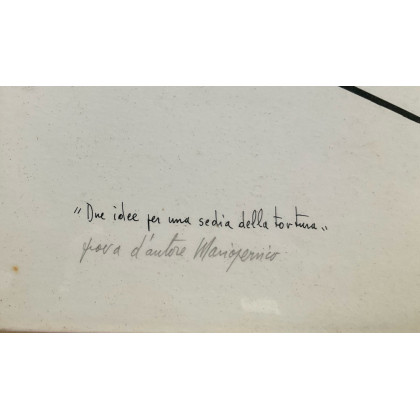 "Due idee per una sedia della tortura"
prova d'autore Mariopersico